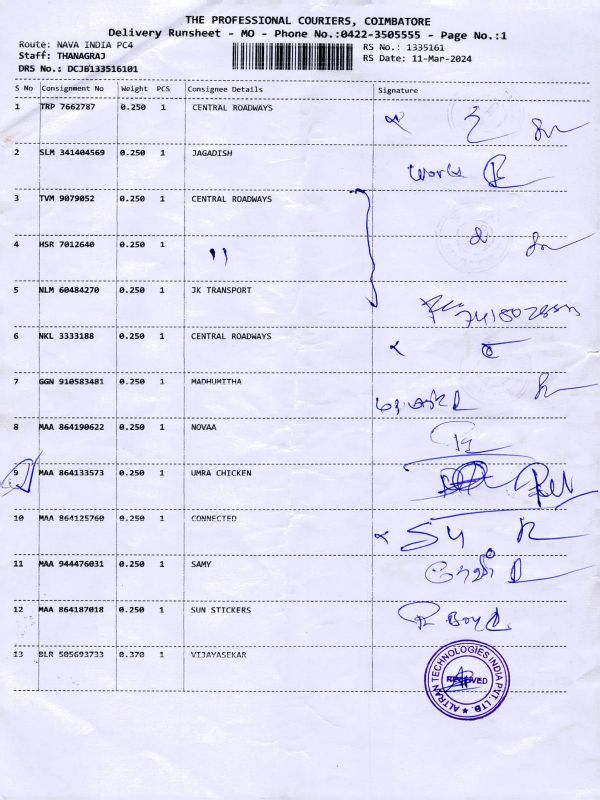 THE PROFESSIONAL COURIERS, COIMBATORE
Delivery Runsheet - MO - Phone No.:0422-3505555 - Page No.:1
Route: NAVA INDIA PC4
RS No.: 1335161
Staff: THANAGRAJ
RS Date: 11-Mar-2024
DRS No.: DCJB133516101
S No Consignment No Weight PCS Consignee Details Signature
1 TRP 7662787 0.250 1 CENTRAL ROADWAYS
2 SLM 341404569 0.250 1 JAGADISH
works
3 TVM 9079052 0.250 1 CENTRAL ROADWAYS
4 HSR 7012640 0.250 1 "
5 NLM 60484270 0.250 1 JK TRANSPORT
6 NKL 3333188 0.250 1 CENTRAL ROADWAYS
7 GGN 910583481 0.250 1 MADHUMITHA
8 MAA 864190622 0.250 1 NOVAA
9 MAA 864133573 0.250 1 UMRA CHICKEN
10 MAA 864125760 0.250 1 CONNECTED
11 MAA 944476031 0.250 1 SAMY
12 MAA 864187018 0.250 1 SUN STICKERS
Boy
13 BLR 505693733 0.370 1 VIJAYASEKAR
ALTRAN TECHNOLOGIES INDIA PVT. LTD.
RECEIVED